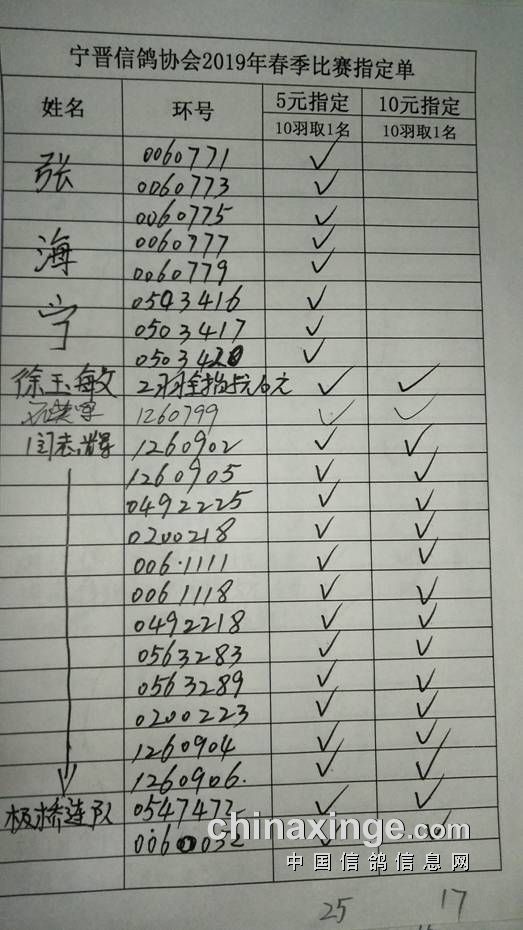 宁晋信鸽协会2019年春季比赛指定单
姓名 环号 5元指定 10元指定
10羽取1名 10羽取1名
张海宁 0060771 ✓
0060773 ✓
0060775 ✓
0060777 ✓
0060779 ✓
0543416 ✓
0503417 ✓
0503420 ✓
徐玉敏 2羽全指5元10元 ✓ ✓
1260799 ✓ ✓
闫志 1260902 ✓ ✓
1260905 ✓ ✓
0492225 ✓ ✓
0200218 ✓ ✓
006·1111 ✓ ✓
0061118 ✓ ✓
0492218 ✓ ✓
0563283 ✓ ✓
0563289 ✓ ✓
0200223 ✓ ✓
1260904 ✓ ✓
1260906. ✓ ✓
板桥连队 0547472 ✓ ✓
0060032 ✓ ✓
chinaxinge.com
中国信鸽信息网
25 17